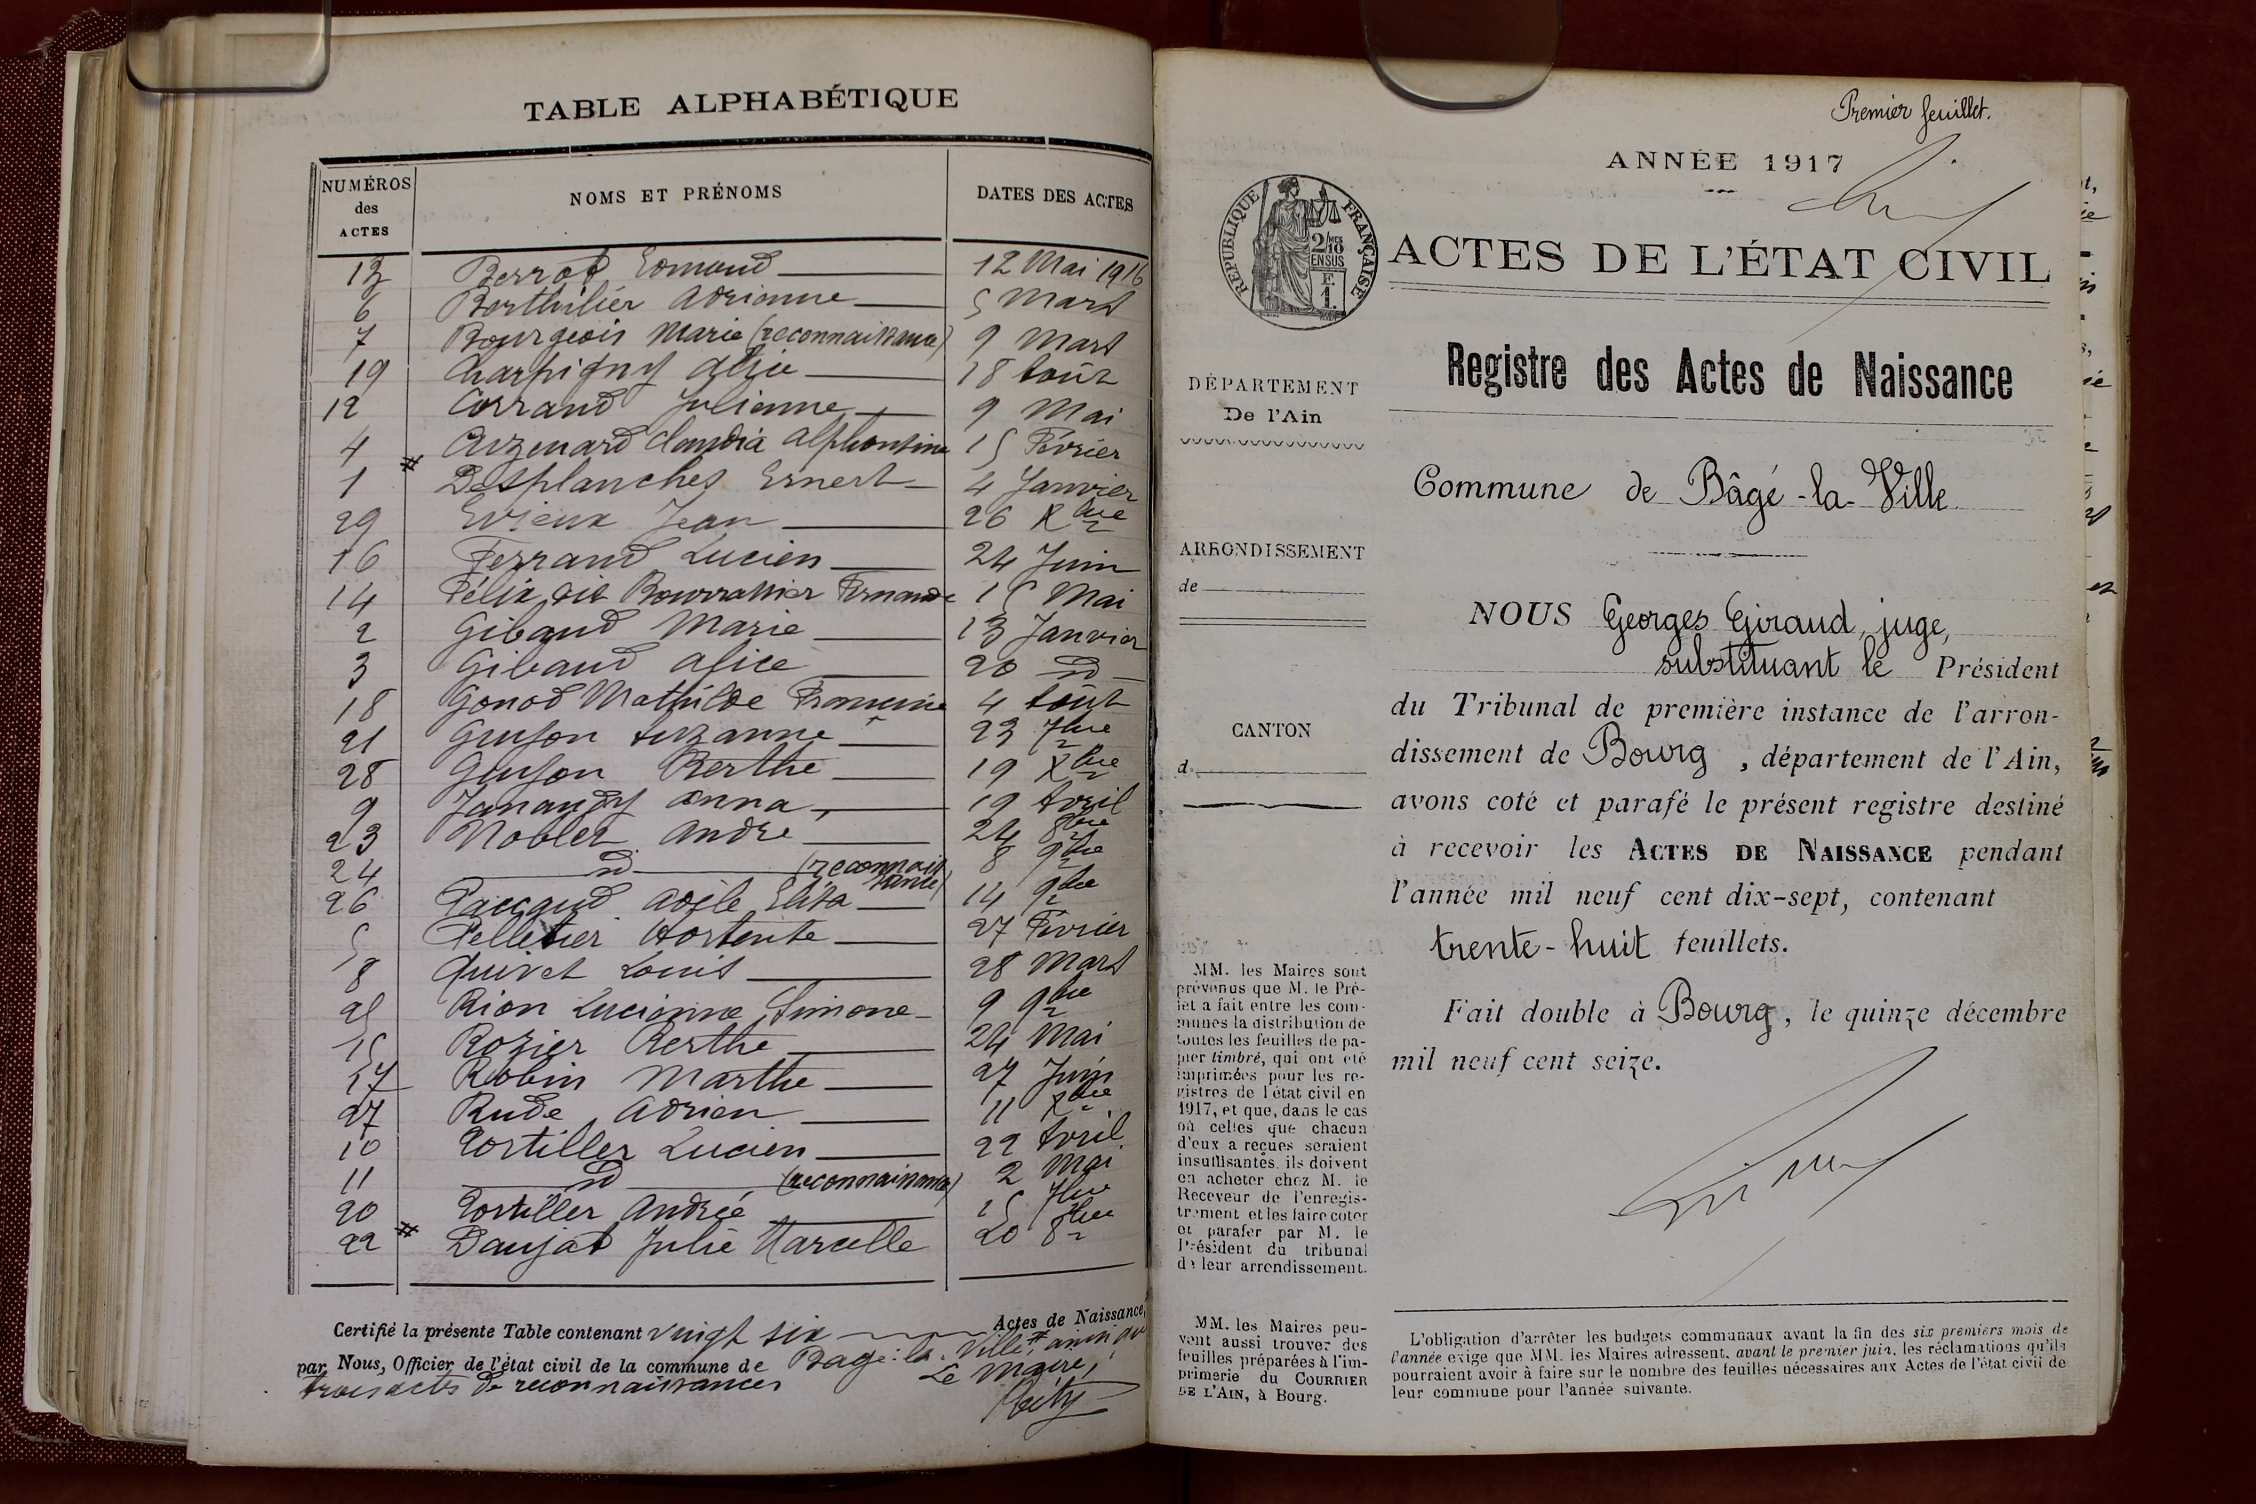 TABLE ALPHABÉTIQUE
NUMÉROS des ACTES NOMS ET PRÉNOMS DATES DES ACTES
13 Berrod Edmond 12 Mai 1916
6 Berthilier Adrienne 5 Mars
7 Bourgeois Marie (reconnaissance) 9 Mars
19 Charpigny Alice 18 Août
12 Corrand Julienne 9 Mai
4 Cuzenard Claudia Alphonsine 15 Février
1 Desplanches Ernest 4 Janvier
29 Evieux Jean 26 Xbre
16 Ferrand Lucien 24 Juin
14 Félix dit Fernande 15 Mai
2 Giband Marie 13 Janvier
3 Giband Alice 20 d
18 Gonod Mathilde Francine 4 Août
21 Guyon Suzanne 23 7bre
28 Guyon Berthe 19 Xbre
9 Janaudy Anna 19 Avril
23 Noblet André 24 8bre
24 d (reconnaissance) 8 9bre
26 Paccaud Adèle Elisa 14 9bre
5 Pelletier Hortense 27 Février
8 Quivet Louis 28 Mars
25 Rion Lucienne Simone 9 9bre
15 Rozier Berthe 24 Mai
17 Robin Marthe 27 Juin
27 Rude Adrien 11 Xbre
10 Portiller Lucien 22 Avril
11 d (reconnaissance) 2 Mai
20 Portiller Andrée 15 7bre
22 # Daujat Julie Marcelle 20 8bre
Certifié la présente Table contenant vingt six Actes de Naissance,
par Nous, Officier de l'état civil de la commune de Bagé-la-Ville, # ainsi que
trois actes de reconnaissances Le Maire,
Premier feuillet.
ANNÉE 1917
RÉPUBLIQUE FRANÇAISE
2/10 MES
EN SUS
F.
1.
ACTES DE L'ÉTAT CIVIL
Registre des Actes de Naissance
DÉPARTEMENT
De l'Ain
Commune de Bâgé-la-Ville
ARRONDISSEMENT
de
CANTON
d
NOUS Georges Giraud, juge,
substituant le Président
du Tribunal de première instance de l'arron-
dissement de Bourg, département de l'Ain,
avons coté et parafé le présent registre destiné
à recevoir les ACTES DE NAISSANCE pendant
l'année mil neuf cent dix-sept, contenant
trente-huit feuillets.
Fait double à Bourg, le quinze décembre
mil neuf cent seize.
MM. les Maires sont
prévenus que M. le Pré-
fet a fait entre les com-
munes la distribution de
toutes les feuilles de pa-
pier timbré, qui ont été
imprimées pour les re-
gistres de l'état civil en
1917, et que, dans le cas
où celles que chacun
d'eux a reçues seraient
insuffisantes, ils doivent
en acheter chez M. le
Receveur de l'enregis-
trement et les faire coter
et parafer par M. le
Président du tribunal
de leur arrondissement.
MM. les Maires peu-
vent aussi trouver des
feuilles préparées à l'im-
primerie du COURRIER
DE L'AIN, à Bourg.
L'obligation d'arrêter les budgets communaux avant la fin des six premiers mois de
l'année exige que MM. les Maires adressent, avant le premier juin, les réclamations qu'ils
pourraient avoir à faire sur le nombre des feuilles nécessaires aux Actes de l'état civil de
leur commune pour l'année suivante.